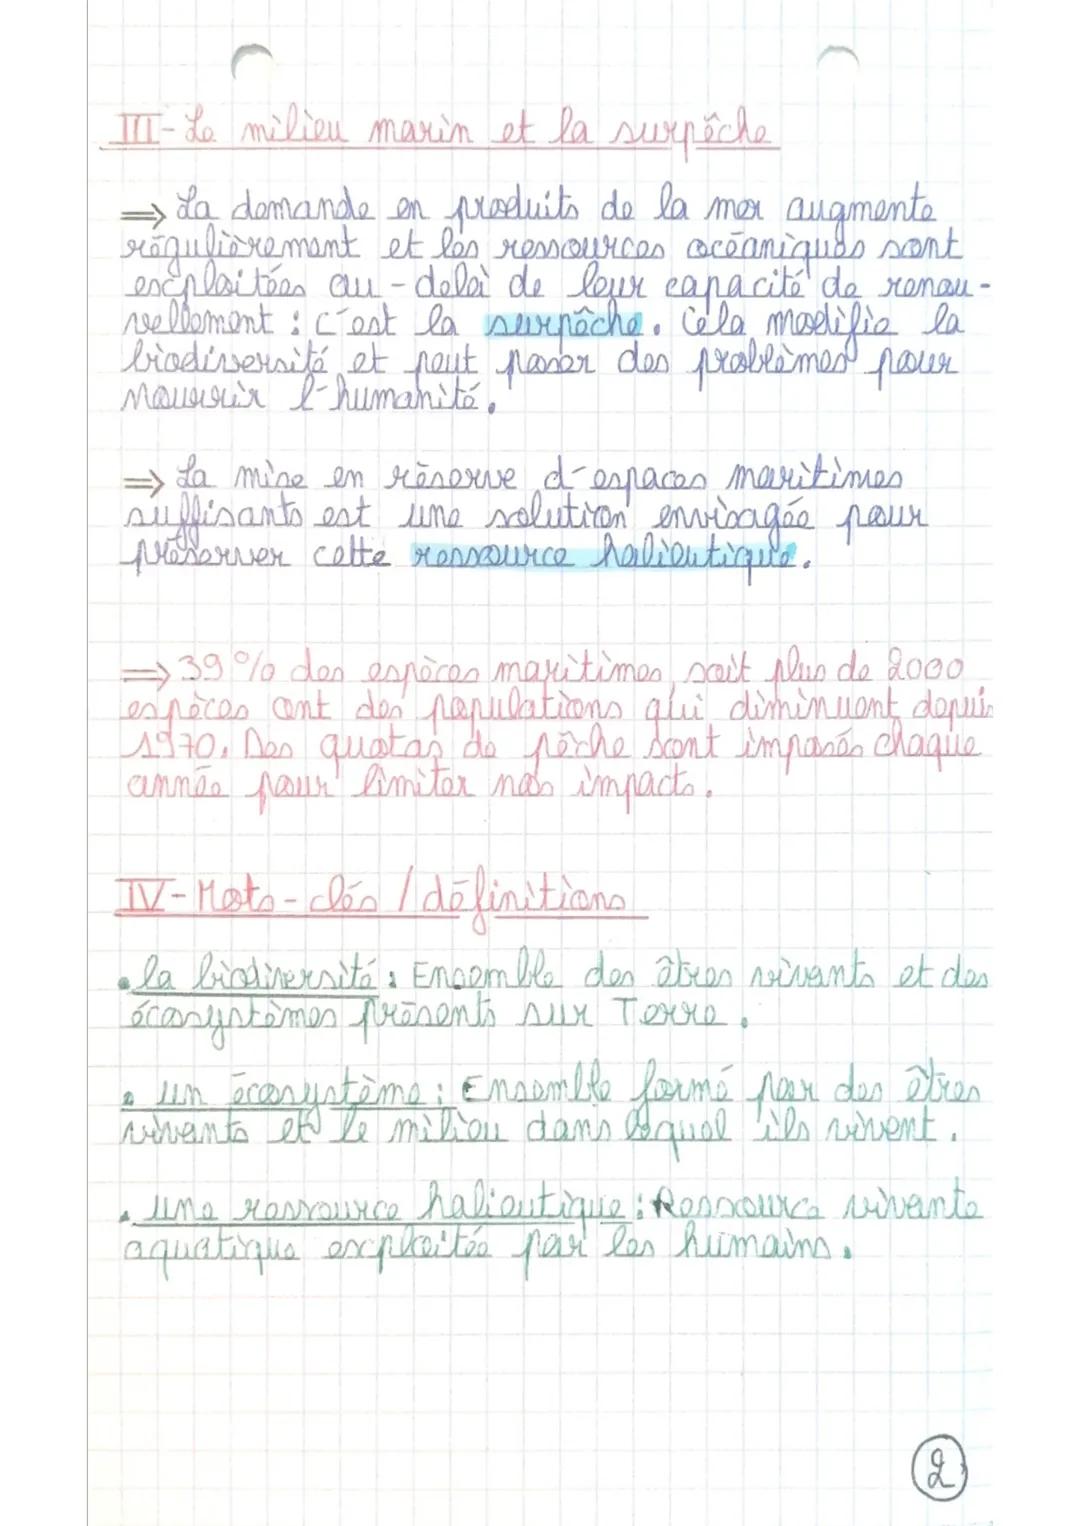 III- Le milieu marin et la surpêche
⇒ La demande en produits de la mer augmente
régulièrement et les ressources océaniques sont
exploitées au-delà de leur capacité de renou-
vellement : c'est la surpêche. Cela modifie la
biodiversité et peut poser des problèmes pour
nourrir l'humanité.
⇒ La mise en réserve d'espaces maritimes
suffisants est une solution envisagée pour
préserver cette ressource halieutique.
⇒ 39 % des espèces maritimes, soit plus de 2000
espèces ont des populations qui diminuent depuis
1970. Des quotas de pêche sont imposés chaque
année pour limiter nos impacts.
IV- Mots-clés / définitions
• la biodiversité : Ensemble des êtres vivants et des
écosystèmes présents sur Terre.
• un écosystème : Ensemble formé par des êtres
vivants et le milieu dans lequel ils vivent.
• une ressource halieutique : Ressource vivante
aquatique exploitée par les humains.
2